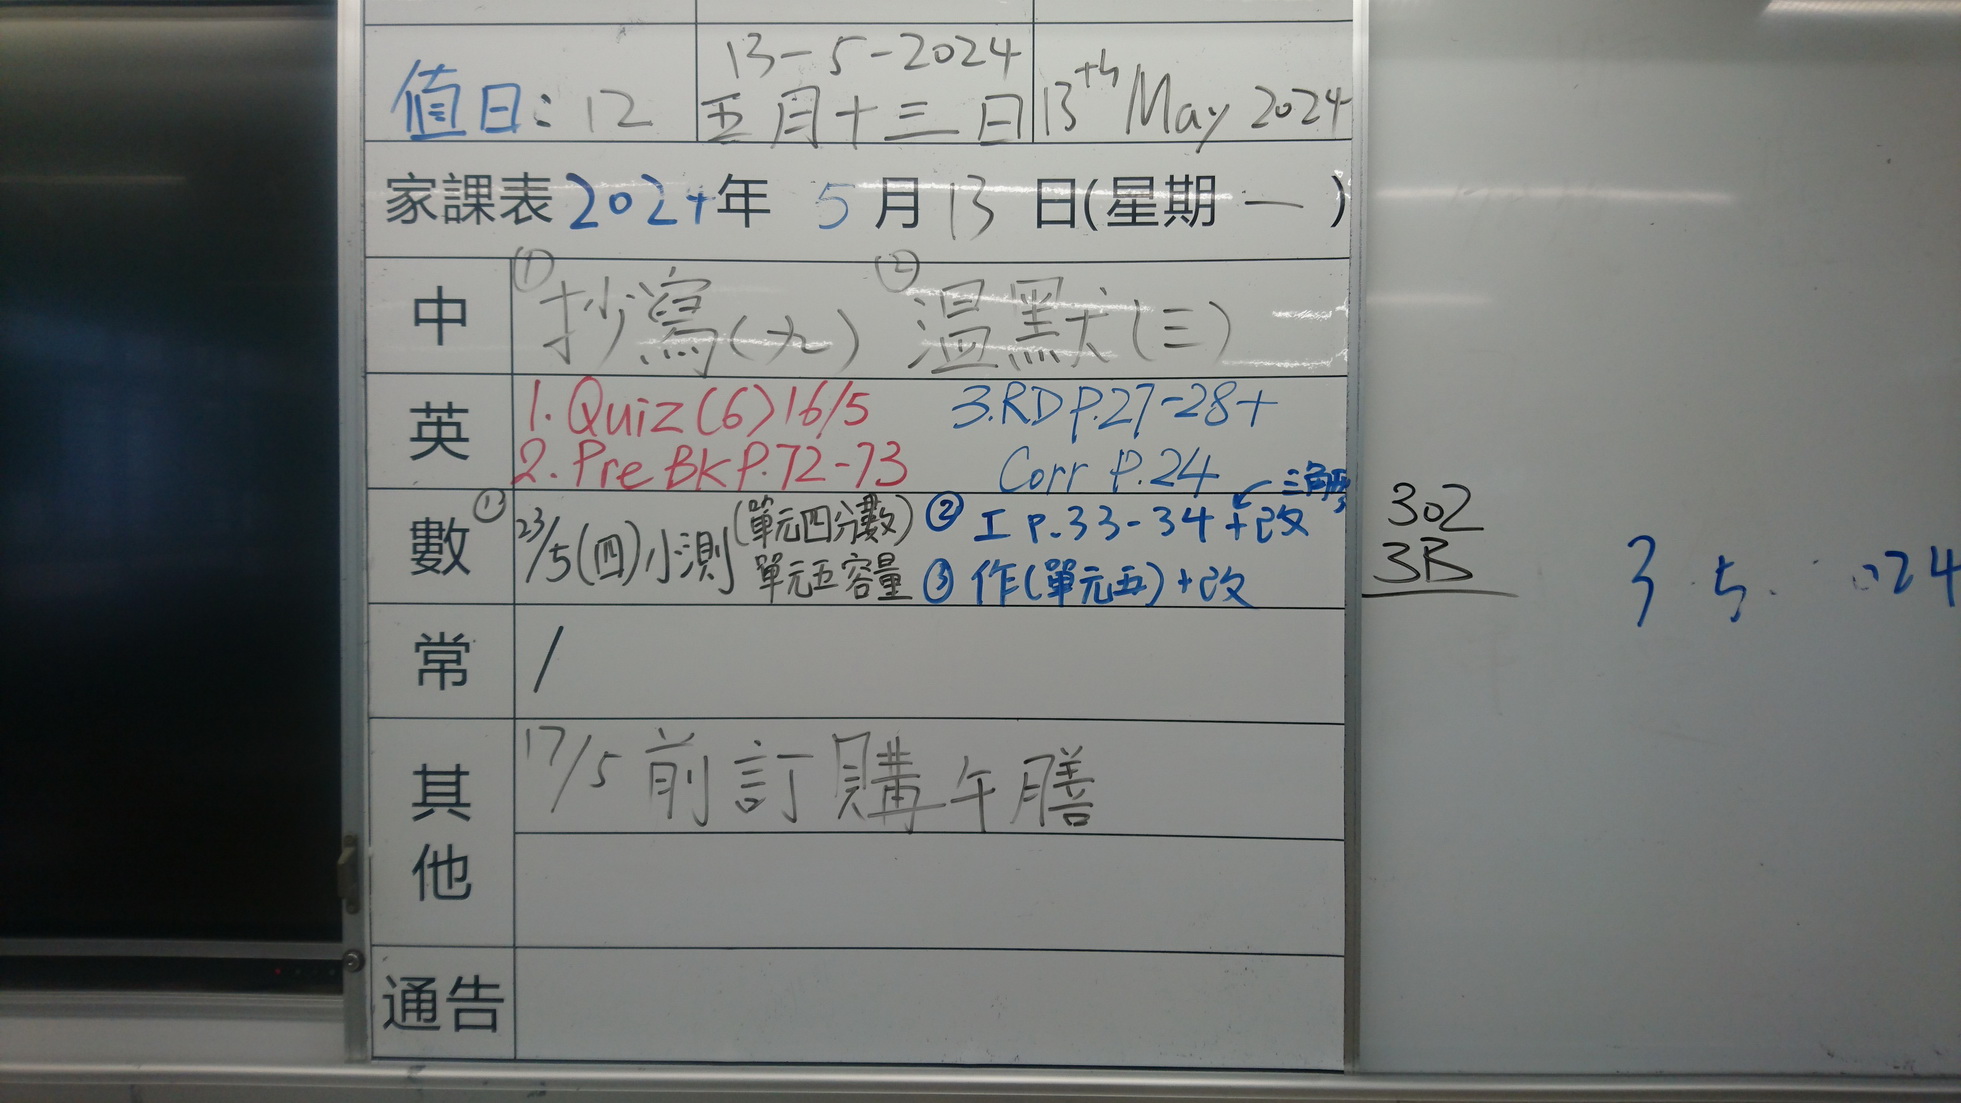 值日：12
13-5-2024
五月十三日
13th May 2024
家課表 2024年 5月13日(星期一)
中
① 抄寫(九) ② 溫默(三)
英
1. Quiz(6)16/5
2. Pre BK P.72-73
3. RD P.27-28+
Corr P.24
數
① 23/5(四)小測(單元四分數)
單元五容量
② 工 P.33-34+改
③ 作(單元五)+改
常
/
其他
17/5前訂購午膳
通告
302
3B
3 5. 024